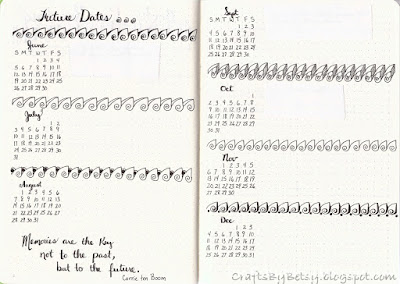 Future Dates ...
June
S M T W T F S
1 2 3 4
5 6 7 8 9 10 11
12 13 14 15 16 17 18
19 20 21 22 23 24 25
26 27 28 29 30
July
1 2
3 4 5 6 7 8 9
10 11 12 13 14 15 16
17 18 19 20 21 22 23
24 25 26 27 28 29 30
31
August
1 2 3 4 5 6
7 8 9 10 11 12 13
14 15 16 17 18 19 20
21 22 23 24 25 26 27
28 29 30 31
Memories are the Key
not to the past,
but to the future.
Corrie ten Boom
Sept
S M T W T F S
1 2 3
4 5 6 7 8 9 10
11 12 13 14 15 16 17
18 19 20 21 22 23 24
25 26 27 28 29 30
Oct
1
2 3 4 5 6 7 8
9 10 11 12 13 14 15
16 17 18 19 20 21 22
23 24 25 26 27 28 29
30 31
Nov
1 2 3 4 5
6 7 8 9 10 11 12
13 14 15 16 17 18 19
20 21 22 23 24 25 26
27 28 29 30
Dec
1 2 3
4 5 6 7 8 9 10
11 12 13 14 15 16 17
18 19 20 21 22 23 24
25 26 27 28 29 30 31
CraftsByBetsy.blogspot.com